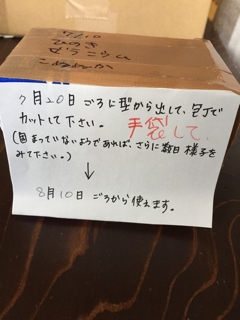 7/10
ひのき
ゼラニウム
7月20日 ごろに型から出して、包丁で
カットして下さい。 手袋して
(固まっていないようであれば、さらに数日様子を
みて下さい。)
↓
8月10日 ごろから使えます。